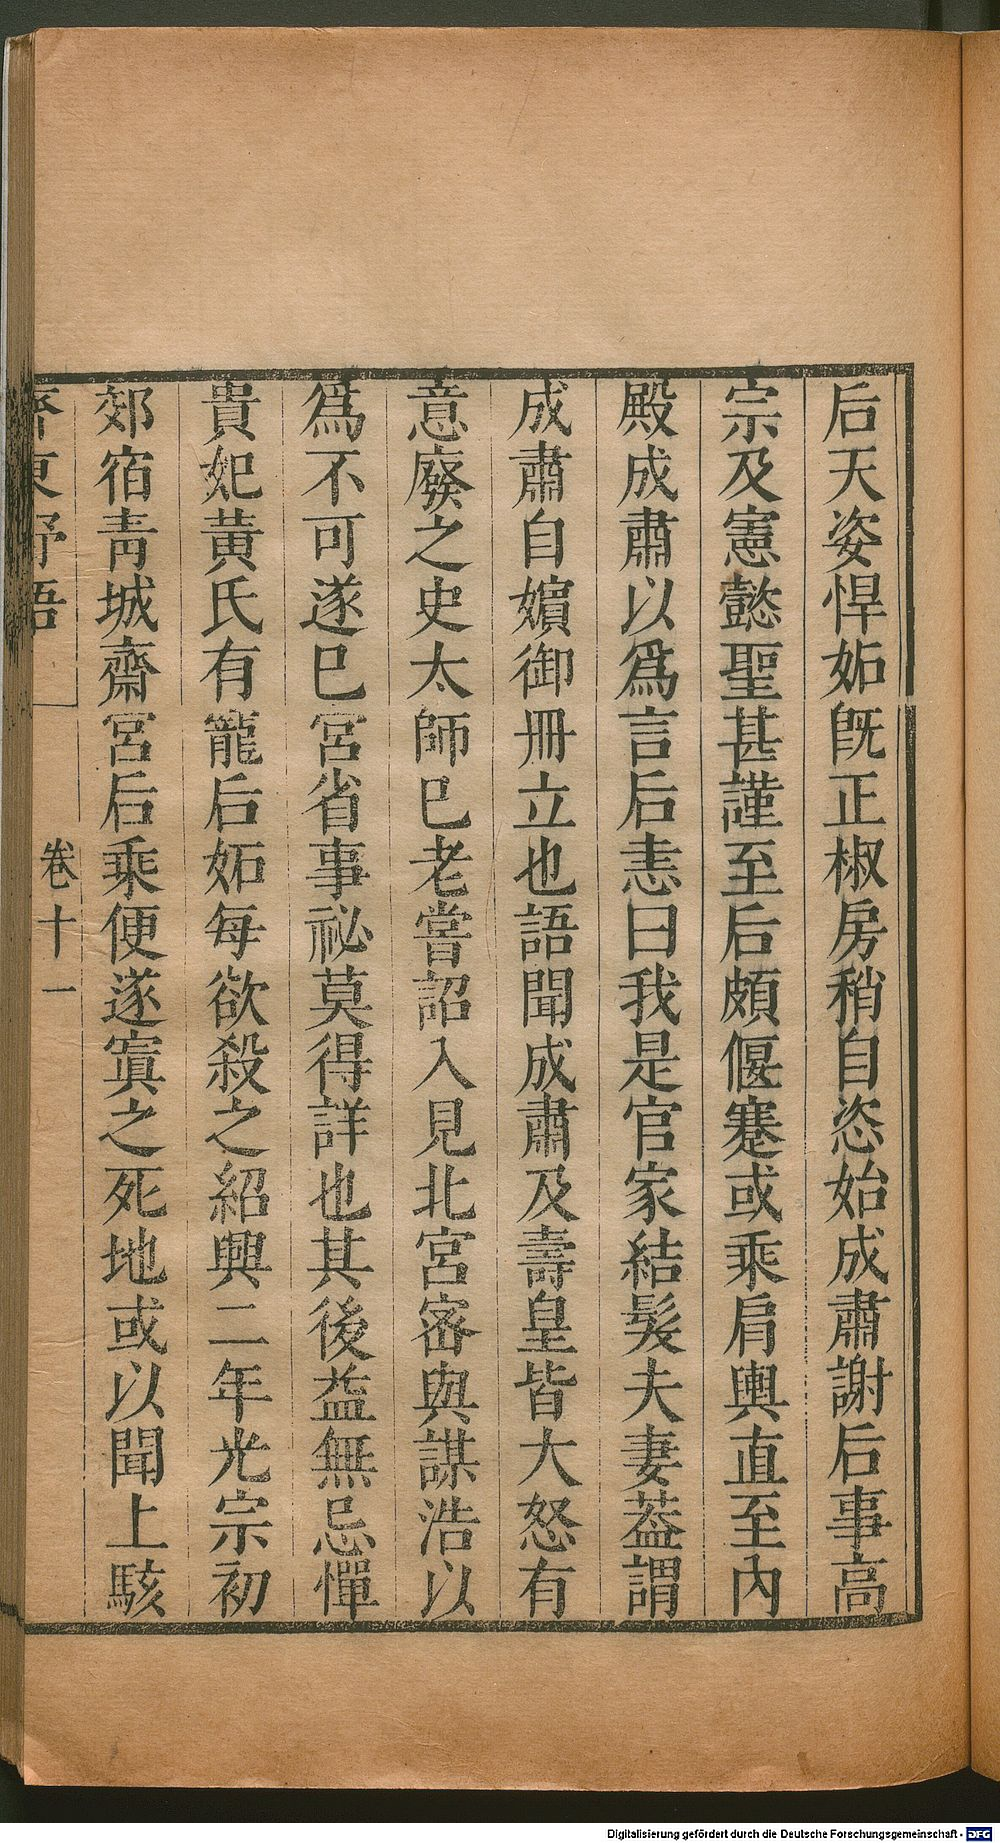 后天姿悍妬旣正椒房稍自恣始成肅謝后事高
宗及憲懿聖甚謹至后頗偃蹇或乘肩輿直至內
殿成肅以爲言后恚曰我是官家結髮夫妻葢謂
成肅自嬪御冊立也語聞成肅及壽皇皆大怒有
意廢之史太師已老嘗詔入見北宮密與謀浩以
爲不可遂已宮省事祕莫得詳也其後益無忌憚
貴妃黃氏有寵后妬每欲殺之紹興二年光宗初
郊宿靑城齋宮后乘便遂寘之死地或以聞上駭
齊東野語
卷十一
Digitalisierung gefördert durch die Deutsche Forschungsgemeinschaft - DFG